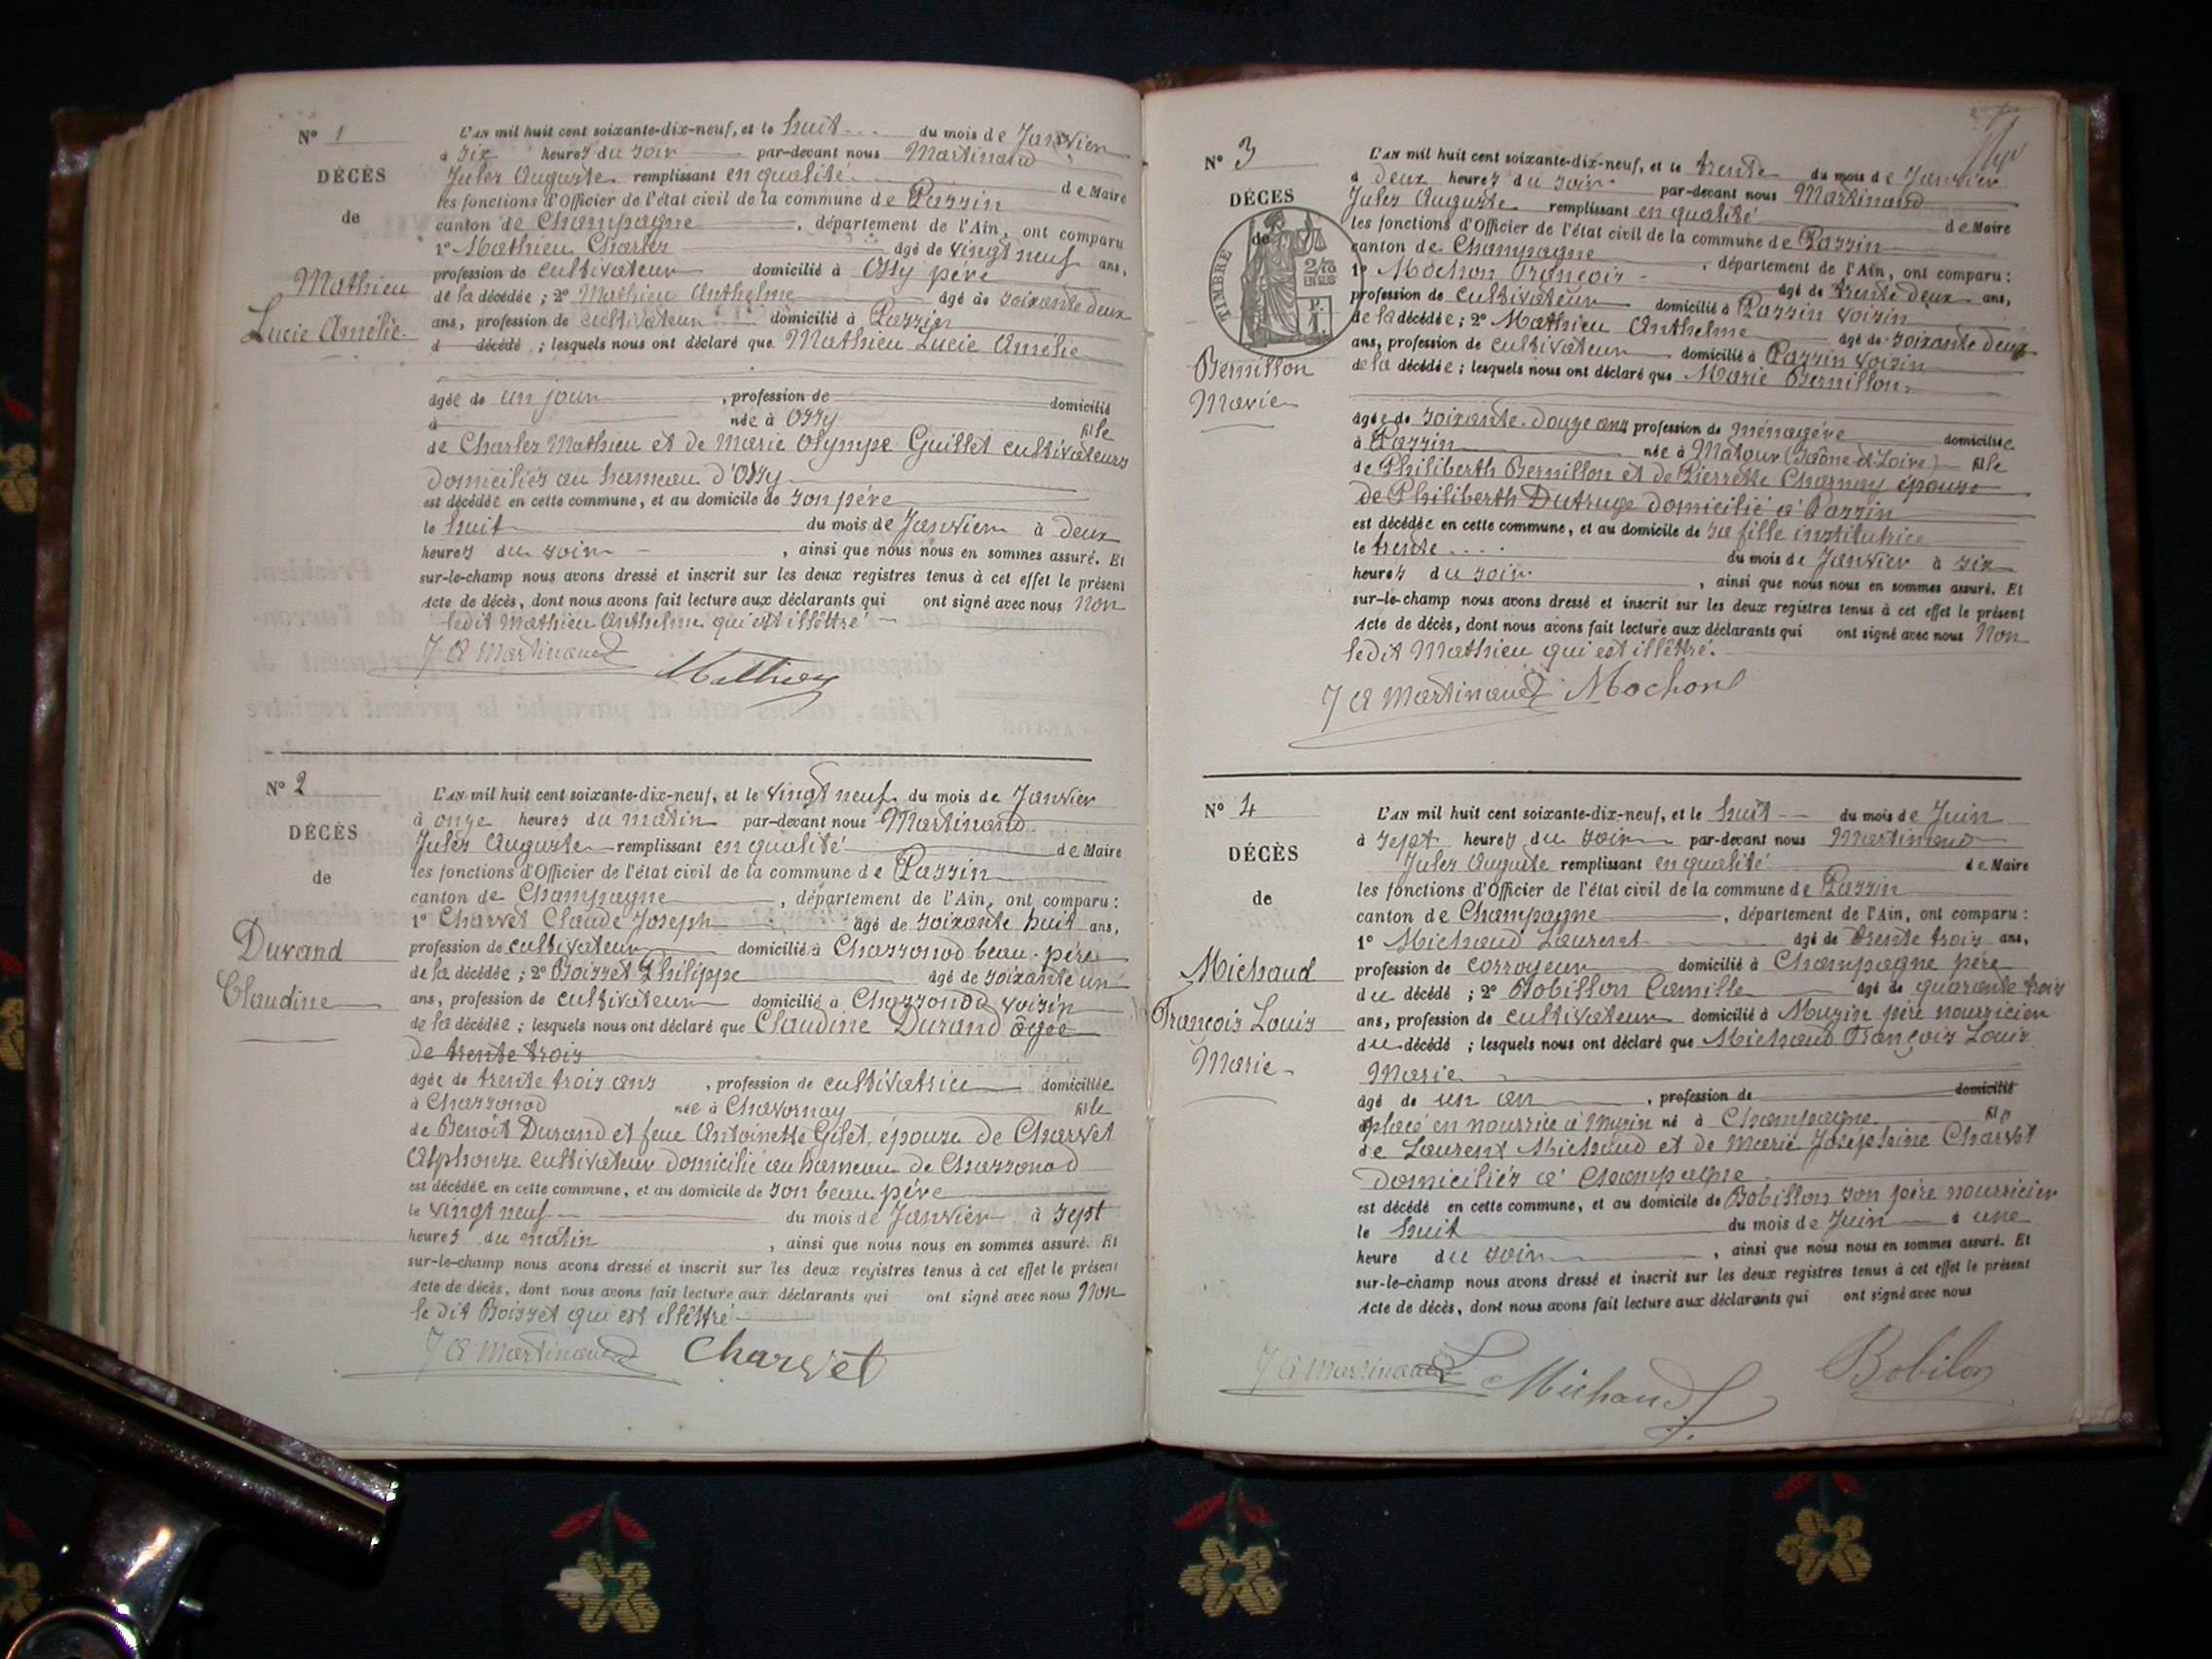 N° 1
DÉCÈS
de
Mathieu
Lucie Amélie
L'AN mil huit cent soixante-dix-neuf, et le huit du mois de Janvier
à six heures du soir par-devant nous Martinand
Jules Auguste remplissant en qualité de Maire
les fonctions d'Officier de l'état civil de la commune de Passin
canton de Champagne, département de l'Ain, ont comparu
1° Mathieu Charles âgé de vingt neuf ans,
profession de cultivateur domicilié à Ossy père
de la décédée ; 2° Mathieu Anthelme âgé de soixante deux
ans, profession de cultivateur domicilié à Passin
d décédé ; lesquels nous ont déclaré que Mathieu Lucie Amélie
âgée de un jour, profession de domicilié
à née à Ossy fille
de Charles Mathieu et de Marie Olympe Guillet cultivateurs
domiciliés au hameau d'Ossy
est décédée en cette commune, et au domicile de son père
le huit du mois de Janvier à deux
heures du soir, ainsi que nous nous en sommes assuré. Et
sur-le-champ nous avons dressé et inscrit sur les deux registres tenus à cet effet le présent
Acte de décès, dont nous avons fait lecture aux déclarants qui ont signé avec nous Non
ledit Mathieu Anthelme qui est illêttré
J A Martinand Mathieu
N° 2
DÉCÈS
de
Durand
Claudine
L'AN mil huit cent soixante-dix-neuf, et le vingt neuf du mois de Janvier
à onze heures du matin par-devant nous Martinand
Jules Auguste remplissant en qualité de Maire
les fonctions d'Officier de l'état civil de la commune de Passin
canton de Champagne, département de l'Ain, ont comparu :
1° Charvet Claude Joseph âgé de soixante huit ans,
profession de cultivateur domicilié à Chassonod beau-père
de la décédée ; 2° Boisset Philippe âgé de soixante un
ans, profession de cultivateur domicilié à Chassonod voisin
de la décédée ; lesquels nous ont déclaré que Claudine Durand âgée
de trente trois
âgée de trente trois ans, profession de cultivatrice domiciliée
à Chassonod née à Chavornay fille
de Benoit Durand et feue Antoinette Gilet, épouse de Charvet
Alphonse cultivateur domicilié au hameau de Chassonod
est décédée en cette commune, et au domicile de son beau père
le vingt neuf du mois de Janvier à sept
heures du matin, ainsi que nous nous en sommes assuré. Et
sur-le-champ nous avons dressé et inscrit sur les deux registres tenus à cet effet le présent
Acte de décès, dont nous avons fait lecture aux déclarants qui ont signé avec nous Non
le dit Boisset qui est illêttré
J A Martinand Charvet
N° 3
DÉCES
de
TIMBRE
Bernillon
Marie
L'AN mil huit cent soixante-dix-neuf, et le trente du mois de Janvier
à deux heures du soir par-devant nous Martinand
Jules Auguste remplissant en qualité de Maire
les fonctions d'Officier de l'état civil de la commune de Passin
canton de Champagne, département de l'Ain, ont comparu :
1° Mochon François âgé de trente deux ans,
profession de cultivateur domicilié à Passin voisin
de la décédée ; 2° Mathieu Anthelme âgé de soixante deux
ans, profession de cultivateur domicilié à Passin voisin
de la décédée ; lesquels nous ont déclaré que Marie Bernillon
âgée de soixante-douze ans profession de ménagère domiciliée
à Passin née à Matour (Saône-et-Loire) fille
de Philiberth Bernillon et de Pierrette Charnay épouse
de Philiberth Dutruge domicilié à Passin
est décédée en cette commune, et au domicile de sa fille institutrice
le trente du mois de Janvier à six
heures du soir, ainsi que nous nous en sommes assuré. Et
sur-le-champ nous avons dressé et inscrit sur les deux registres tenus à cet effet le présent
Acte de décès, dont nous avons fait lecture aux déclarants qui ont signé avec nous Non
ledit Mathieu qui est illêttré.
J A Martinand Mochon
N° 4
DÉCÈS
de
Michaud
François Louis
Marie
L'AN mil huit cent soixante-dix-neuf, et le huit du mois de Juin
à sept heures du soir par-devant nous Martinand
Jules Auguste remplissant en qualité de Maire
les fonctions d'Officier de l'état civil de la commune de Passin
canton de Champagne, département de l'Ain, ont comparu :
1° Michaud Laurent âgé de trente trois ans,
profession de corroyeur domicilié à Champagne père
du décédé ; 2° Bobillon Camille âgé de quarante trois
ans, profession de cultivateur domicilié à Muzin père nourricier
du décédé ; lesquels nous ont déclaré que Michaud François Louis
Marie
âgé de un an, profession de domicilié
placé en nourrice à Muzin né à Champagne fils
de Laurent Michaud et de Marie Josephine Charvet
domiciliés à Champagne
est décédé en cette commune, et au domicile de Bobillon son père nourricier
le huit du mois de Juin à une
heure du soir, ainsi que nous nous en sommes assuré. Et
sur-le-champ nous avons dressé et inscrit sur les deux registres tenus à cet effet le présent
Acte de décès, dont nous avons fait lecture aux déclarants qui ont signé avec nous
J A Martinand L Michaud Bobilon